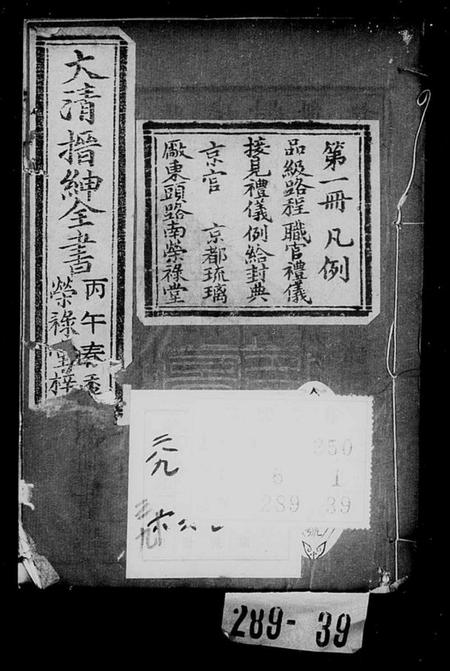 大清搢紳全書
丙午春季
榮祿堂梓
第一冊 凡例
品級路程 職官禮儀
接見禮儀 例給封典
京官 京都琉璃
廠東頭路南榮祿堂
三九
350
6 1
289 39
三九
289-39